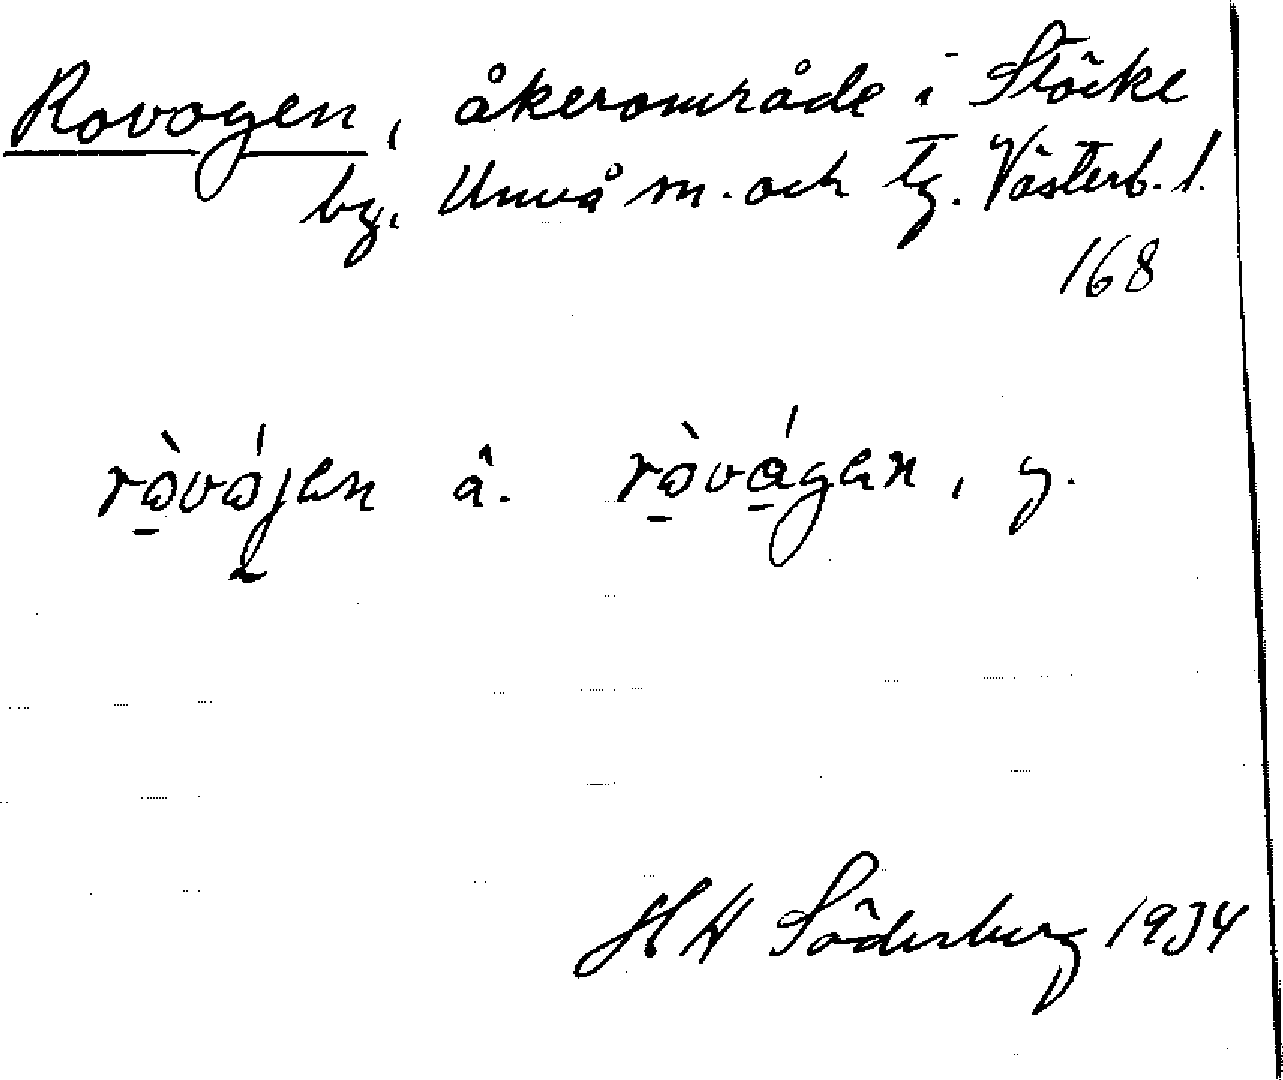 Rovogen, åkerområde i Stöcke
by. Umeå m. och tg. Västerb. l.
168
rò̱vójen â. rò̱vó̱gen, y.
H W Söderberg 1934